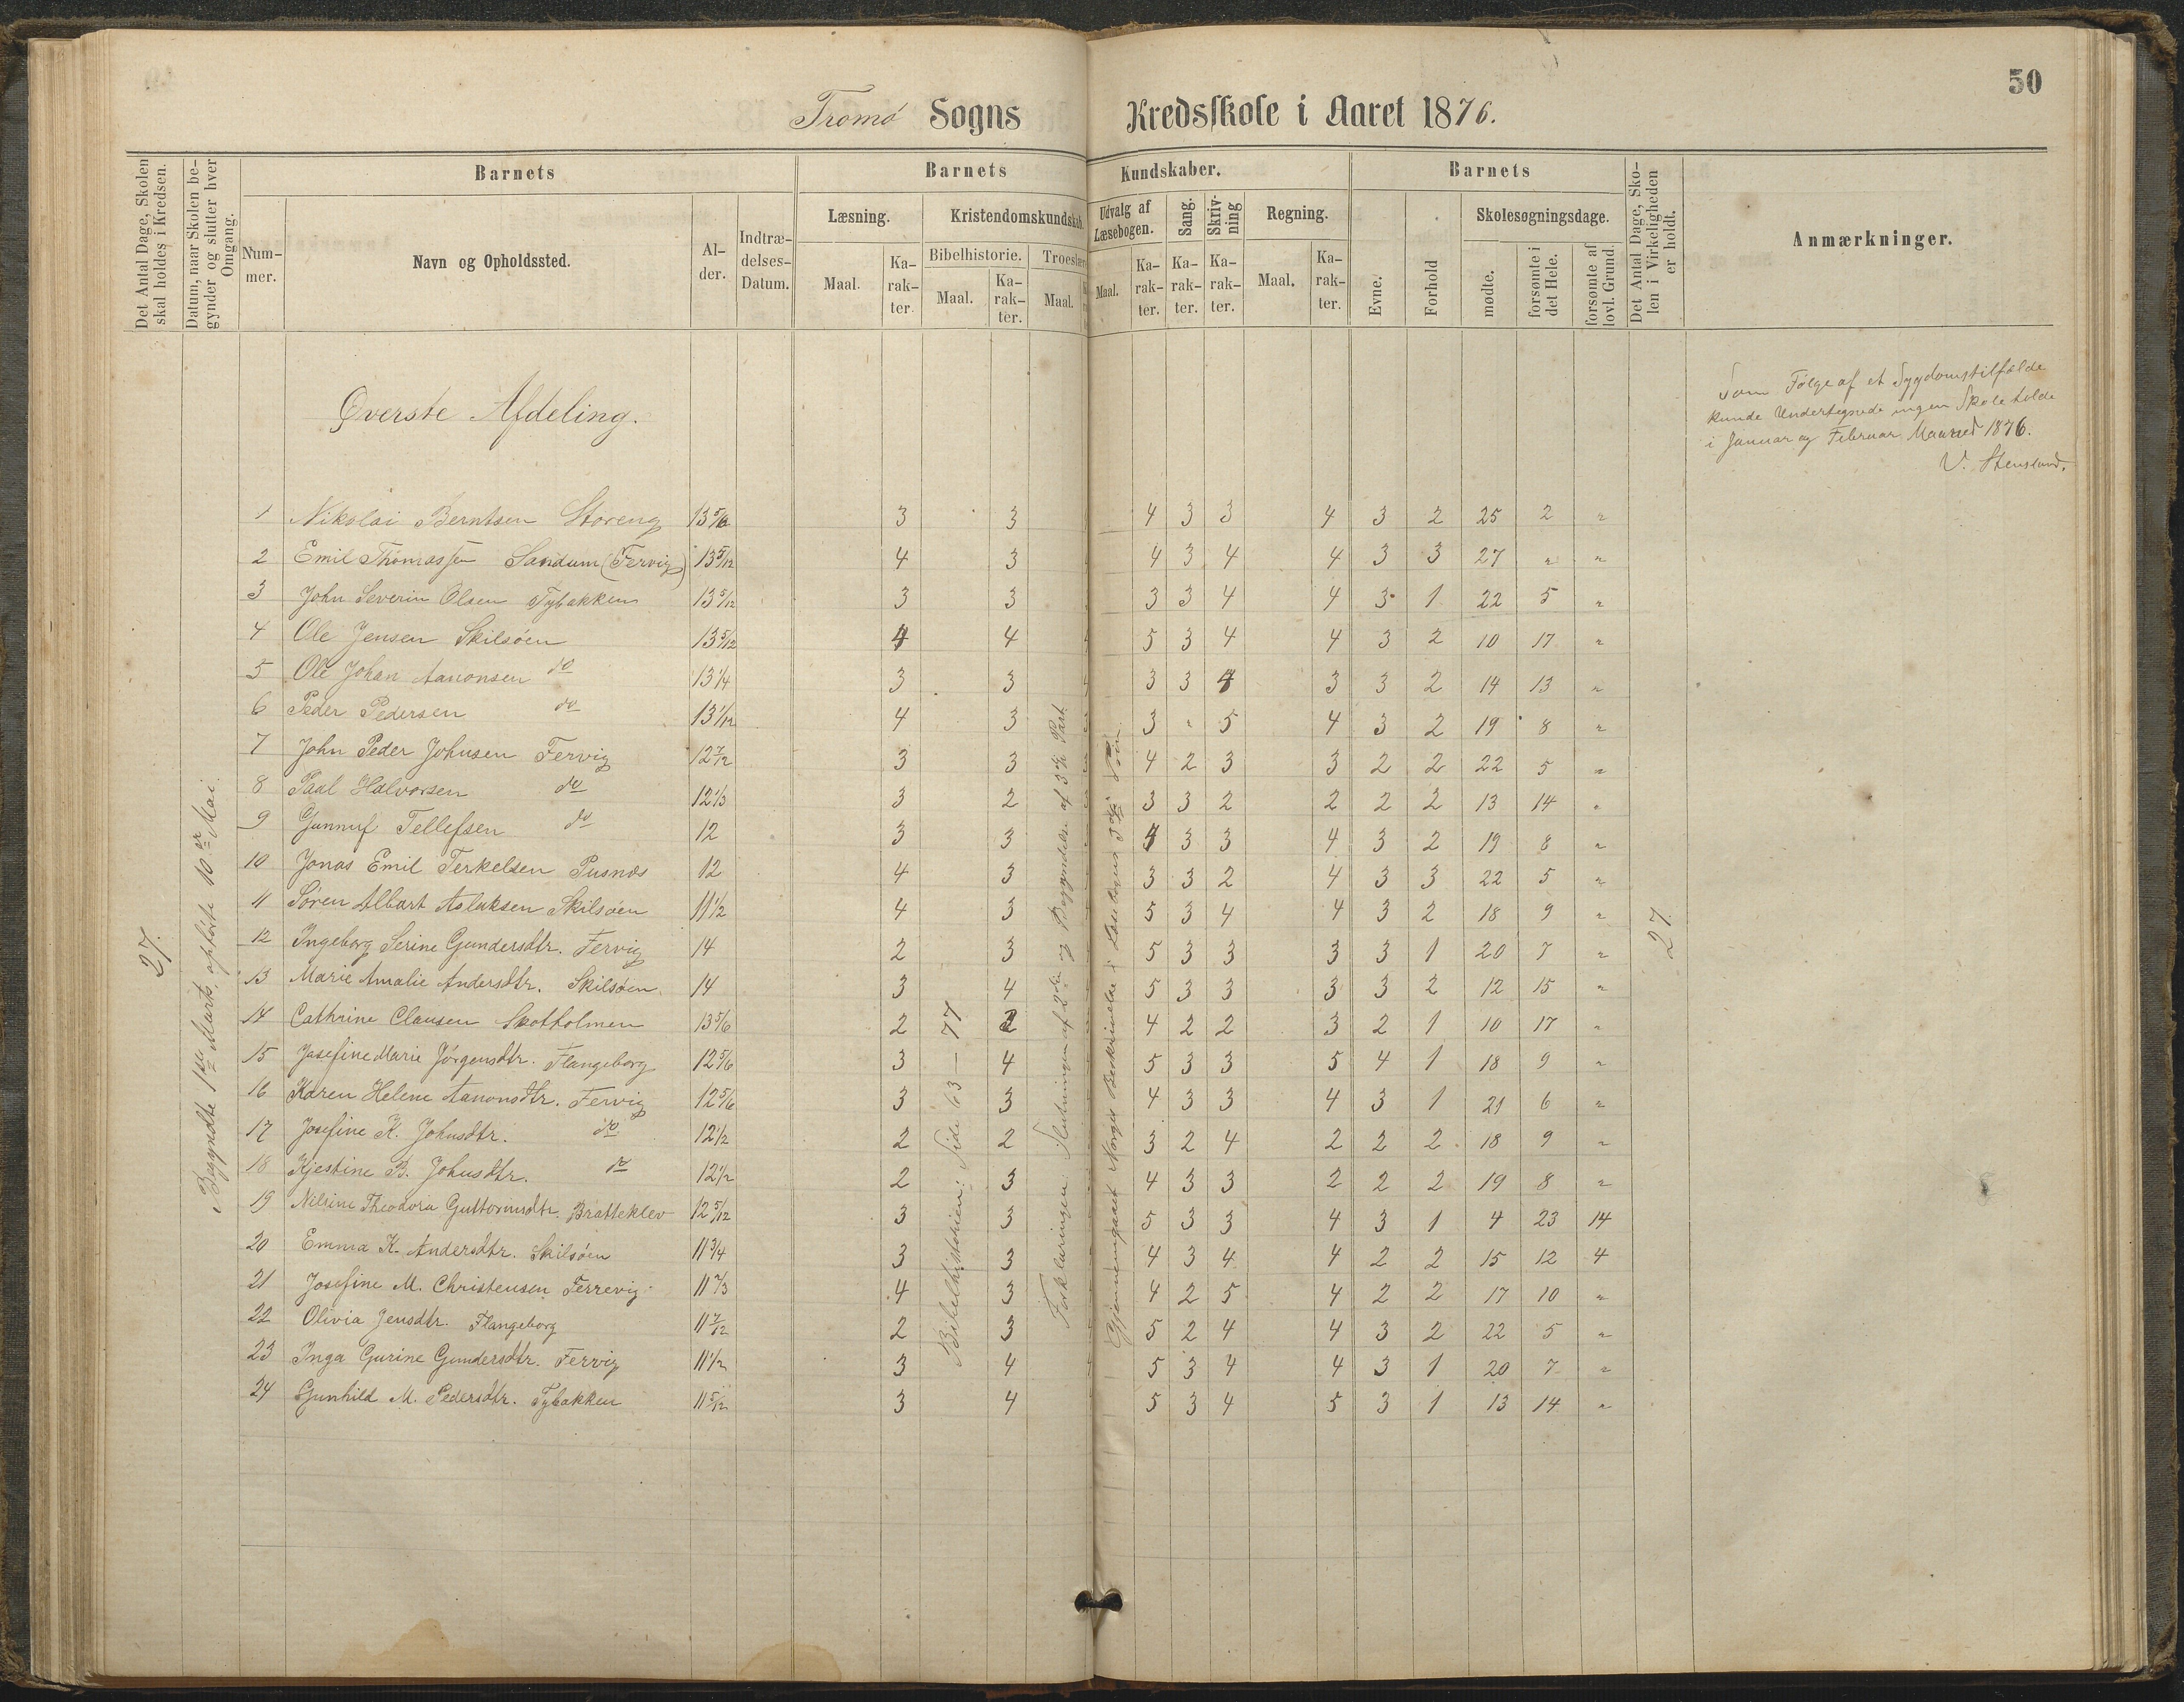 50
Tromø Sogns Kredsskole i Aaret 1876.
Det Antal Dage, Skolen skal holdes i Kredsen.
Datum, naar Skolen begynder og slutter hver Omgang.
Barnets
Nummer.
Navn og Opholdssted.
Alder.
Indtrædelses-Datum.
Barnets Kundskaber.
Læsning.
Maal.
Karakter.
Kristendomskundskab.
Bibelhistorie.
Maal.
Karakter.
Troeslære
Maal.
Udvalg af Læsebogen.
Maal.
Karakter.
Sang.
Karakter.
Skrivning
Karakter.
Regning.
Maal.
Karakter.
Barnets
Evne.
Forhold
Skolesøgningsdage.
mødte.
forsømte i det Hele.
forsømte af lovl. Grund.
Det Antal Dage, Skolen i Virkeligheden er holdt.
Anmærkninger.
Øverste Afdeling.
Som Følge af et Sygdomstilfælde
kunde Undertegnede ingen Skole holde
i Januar og Februar Maaned 1876.
V. Stensund.
27.
Begyndte 1ste Marts, ophørte 10de Mai.
1 Nikolai Berntsen Storeng 13 5/6 3 3 4 3 3 4 3 2 25 2 "
2 Emil Thomassen Sandum (Fervig) 13 5/12 4 3 4 3 4 4 3 3 27 " "
3 John Severin Olsen Tybakken 13 5/12 3 3 3 3 4 4 3 1 22 5 "
4 Ole Jensen Skilsøen 13 5/12 4 4 5 3 4 4 3 2 10 17 "
5 Ole Johan Aanonsen do 13 1/4 3 3 3 3 4 3 3 2 14 13 "
6 Peder Pedersen do 13 1/12 4 3 3 " 5 4 3 2 19 8 "
7 John Peder Johnsen Fervig 12 7/12 3 3 4 2 3 3 2 2 22 5 "
8 Paal Halvorsen do 12 1/3 3 2 3 3 2 2 2 2 13 14 "
9 Gunnuf Tellefsen do 12 3 3 4 3 3 4 3 2 19 8 "
10 Jonas Emil Terkelsen Pusnæs 12 4 3 3 3 2 4 3 3 22 5 "
11 Søren Albart Aslaksen Skilsøen 11 1/2 4 3 5 3 4 4 3 2 18 9 "
12 Ingeborg Serine Gundersdtr. Fervig 14 2 3 5 3 3 3 3 1 20 7 "
13 Marie Amalie Andersdtr. Skilsøen. 14 3 4 5 3 3 3 3 2 12 15 "
14 Cathrine Clausen Skotholmen 13 5/6 2 2 4 2 2 3 2 1 10 17 "
15 Josefine Marie Jørgensdtr. Flangeborg 12 5/6 3 4 5 3 3 5 4 1 18 9 "
16 Karen Helene Aanonsdtr. Fervig 12 5/6 3 3 4 3 3 4 3 1 21 6 "
17 Josefine K. Johnsdtr. do 12 1/2 2 2 3 2 4 2 2 2 18 9 "
18 Kjestine B. Johnsdtr. do 12 1/2 2 3 4 3 3 2 2 2 19 8 "
19 Nilsine Theodora Guttormsdtr. Bratteklev 12 5/12 3 3 5 3 3 4 3 1 4 23 14
20 Emma K. Andersdtr. Skilsøen 11 3/4 3 3 4 3 4 4 2 2 15 12 4
21 Josefine M. Christensen Ferrevig 11 2/3 4 3 4 2 5 4 2 2 17 10 "
22 Olivia Jensdtr. Flangeborg 11 7/12 2 3 5 2 4 4 3 2 22 5 "
23 Inga Gurine Gundersdtr. Fervig 11 1/2 3 4 5 3 4 4 3 1 20 7 "
24 Gunhild M. Pedersdtr. Tybakken 11 5/12 3 4 5 3 4 5 3 1 13 14 "
Bibelhistorien: Side 63 — 77
Forklaringen: Slutningen af 2den og Begyndelsen af 3die Part.
Gjennemgaaet Norges Beskrivelse i Læsebogens 3die
27.